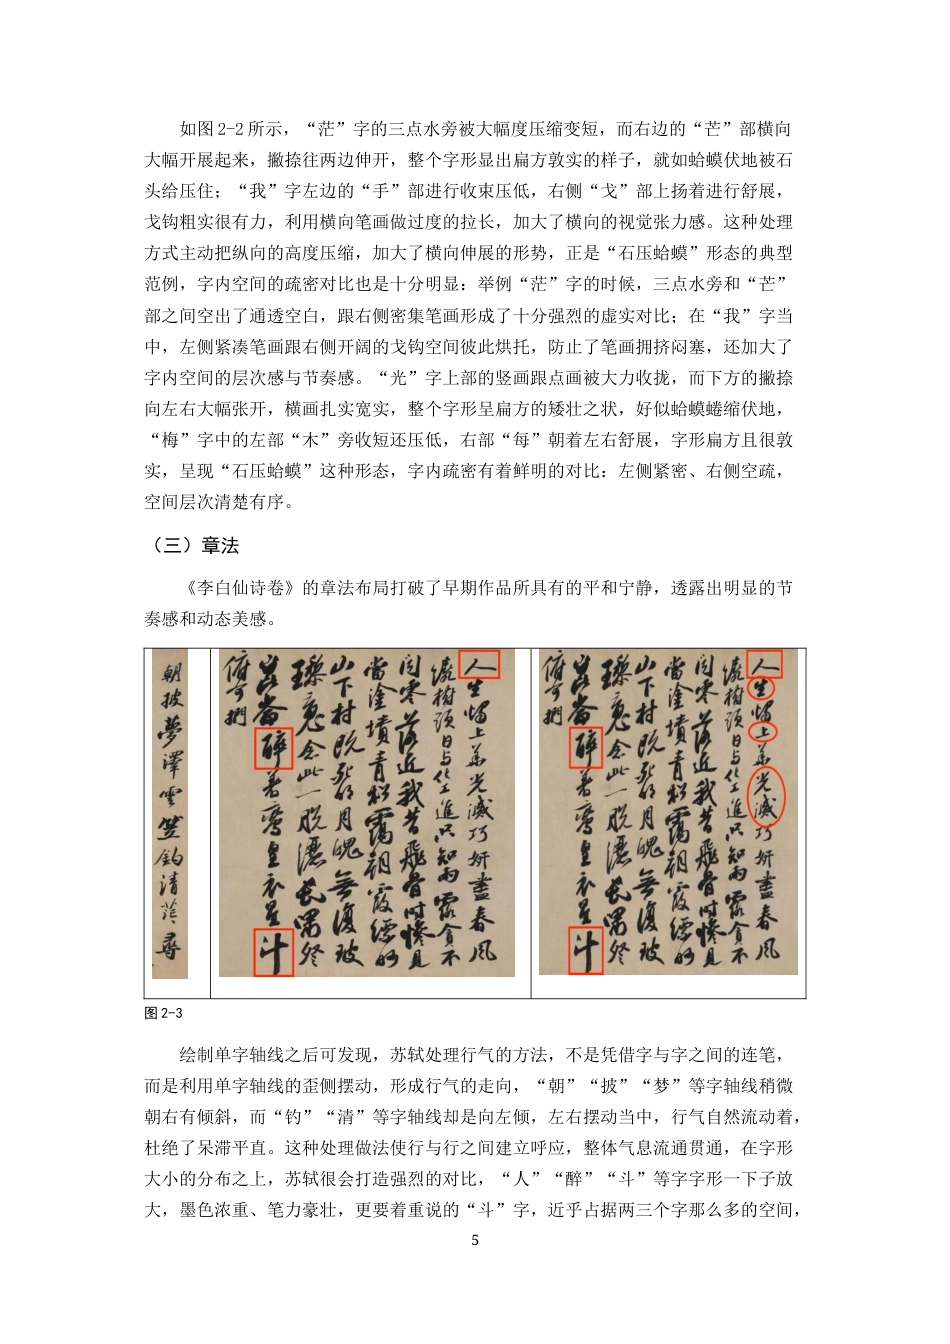 如图 2-2 所示，“茫”字的三点水旁被大幅度压缩变短，而右边的“芒”部横向
大幅开展起来，撇捺往两边伸开，整个字形显出扁方敦实的样子，就如蛤蟆伏地被石
头给压住；“我”字左边的“手”部进行收束压低，右侧“戈”部上扬着进行舒展，
戈钩粗实很有力，利用横向笔画做过度的拉长，加大了横向的视觉张力感。这种处理
方式主动把纵向的高度压缩，加大了横向伸展的形势，正是“石压蛤蟆”形态的典型
范例，字内空间的疏密对比也是十分明显：举例“茫”字的时候，三点水旁和“芒”
部之间空出了通透空白，跟右侧密集笔画形成了十分强烈的虚实对比；在“我”字当
中，左侧紧凑笔画跟右侧开阔的戈钩空间彼此烘托，防止了笔画拥挤闷塞，还加大了
字内空间的层次感与节奏感。“光”字上部的竖画跟点画被大力收拢，而下方的撇捺
向左右大幅张开，横画扎实宽实，整个字形呈扁方的矮壮之状，好似蛤蟆蜷缩伏地，
“梅”字中的左部“木”旁收短还压低，右部“每”朝着左右舒展，字形扁方且很敦
实，呈现“石压蛤蟆”这种形态，字内疏密有着鲜明的对比：左侧紧密、右侧空疏，
空间层次清楚有序。
（三）章法
《李白仙诗卷》的章法布局打破了早期作品所具有的平和宁静，透露出明显的节
奏感和动态美感。
朝披夢澤雲笠釣清茫尋
人生燭上華光滅巧妍盡春風
繞樹頭日与化工進只知雨露貪不
聞零落近我昔飛骨時慘見
當塗墳青松靄朝霞縹眇
山下村既死明月魄無復玻
璃魂念此一脫灑長嘯登
崑崙醉著鸞皇衣星斗
俯可捫
人生燭上華光滅巧妍盡春風
繞樹頭日与化工進只知雨露貪不
聞零落近我昔飛骨時慘見
當塗墳青松靄朝霞縹眇
山下村既死明月魄無復玻
璃魂念此一脫灑長嘯登
崑崙醉著鸞皇衣星斗
俯可捫
图 2-3
绘制单字轴线之后可发现，苏轼处理行气的方法，不是凭借字与字之间的连笔，
而是利用单字轴线的歪侧摆动，形成行气的走向，“朝”“披”“梦”等字轴线稍微
朝右有倾斜，而“钓”“清”等字轴线却是向左倾，左右摆动当中，行气自然流动着，
杜绝了呆滞平直。这种处理做法使行与行之间建立呼应，整体气息流通贯通，在字形
大小的分布之上，苏轼很会打造强烈的对比，“人”“醉”“斗”等字字形一下子放
大，墨色浓重、笔力豪壮，更要着重说的“斗”字，近乎占据两三个字那么多的空间，
5